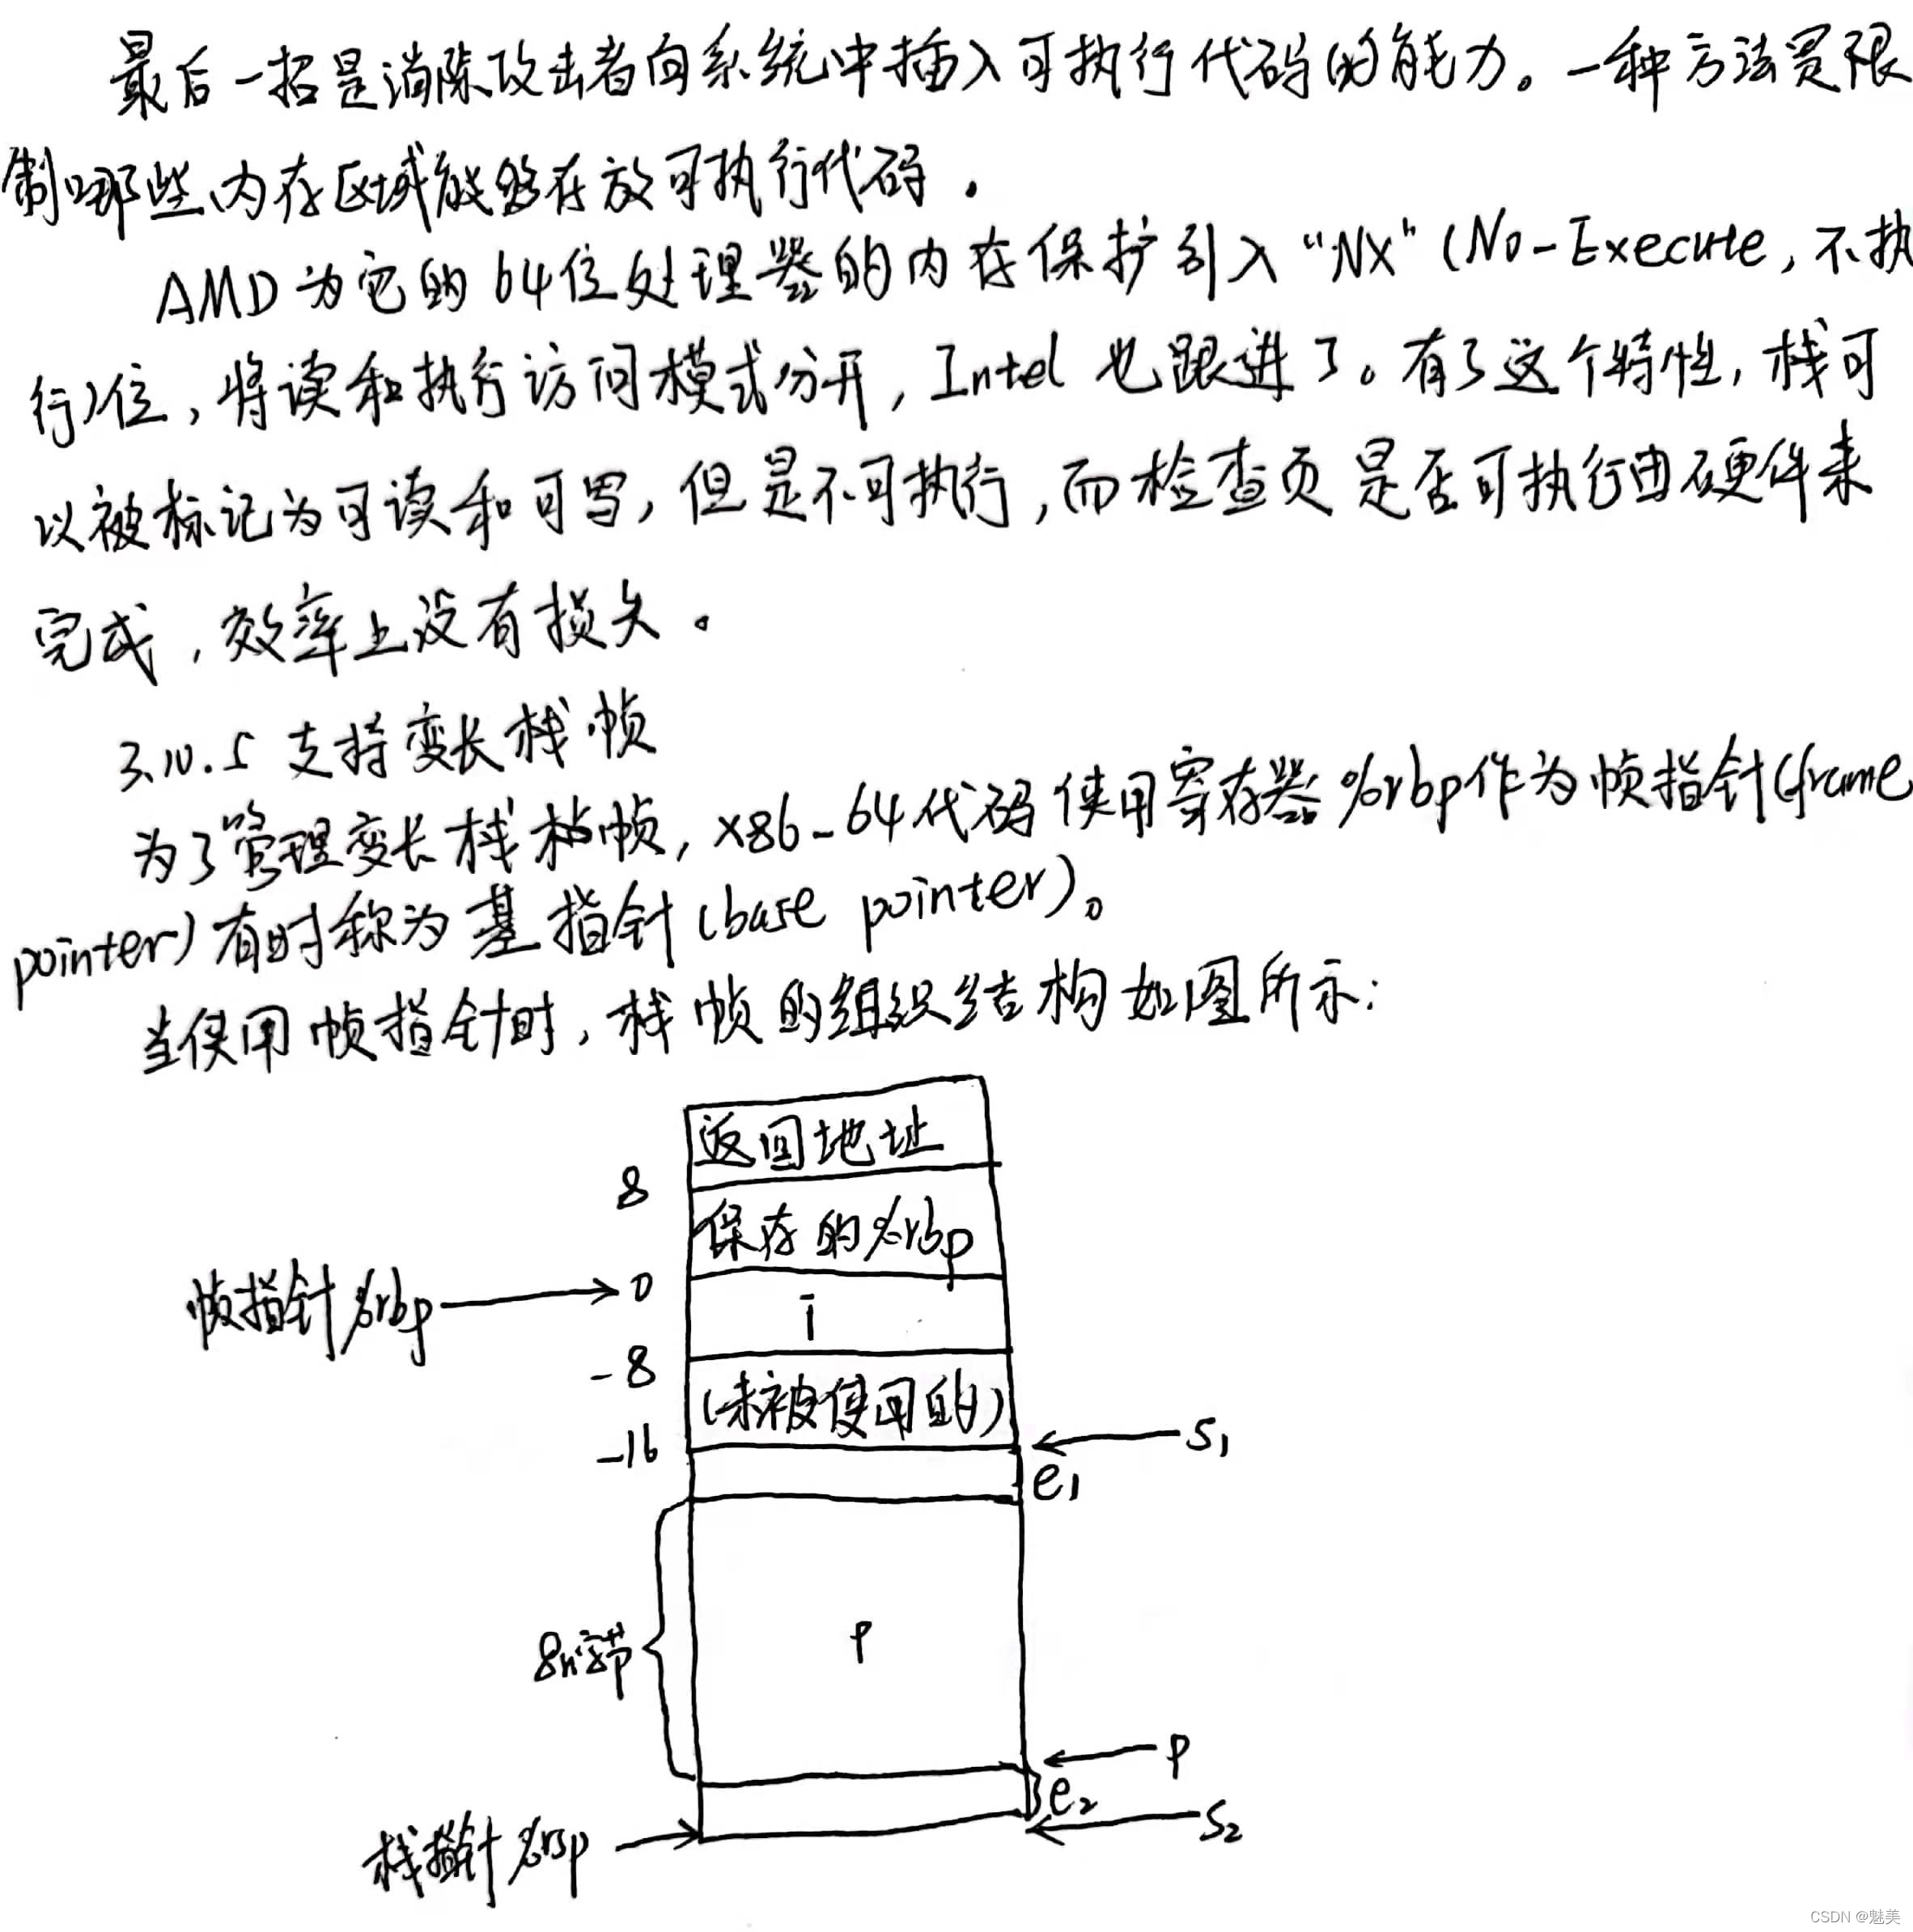 最后一招是消除攻击者向系统中插入可执行代码的能力。一种方法是限
制哪些内存区域能够存放可执行代码.
AMD为它的64位处理器的内存保护引入“NX”(No-Execute,不执
行)位,将读和执行访问模式分开,Intel也跟进了。有了这个特性,栈可
以被标记为可读和可写,但是不可执行,而检查页是否可执行由硬件来
完成,效率上没有损失。
3.10.5 支持变长栈帧
为了管理变长栈帧,x86-64代码使用寄存器%rbp作为帧指针(frame
pointer)有时称为基指针(base pointer)。
当使用帧指针时,栈帧的组织结构如图所示:
返回地址
8
保存的%rbp
帧指针%rbp
0
i
-8
(未被使用的)
-16
s1
e1
8n字节
P
p
e2
栈指针%rsp
s2
CSDN @魅美